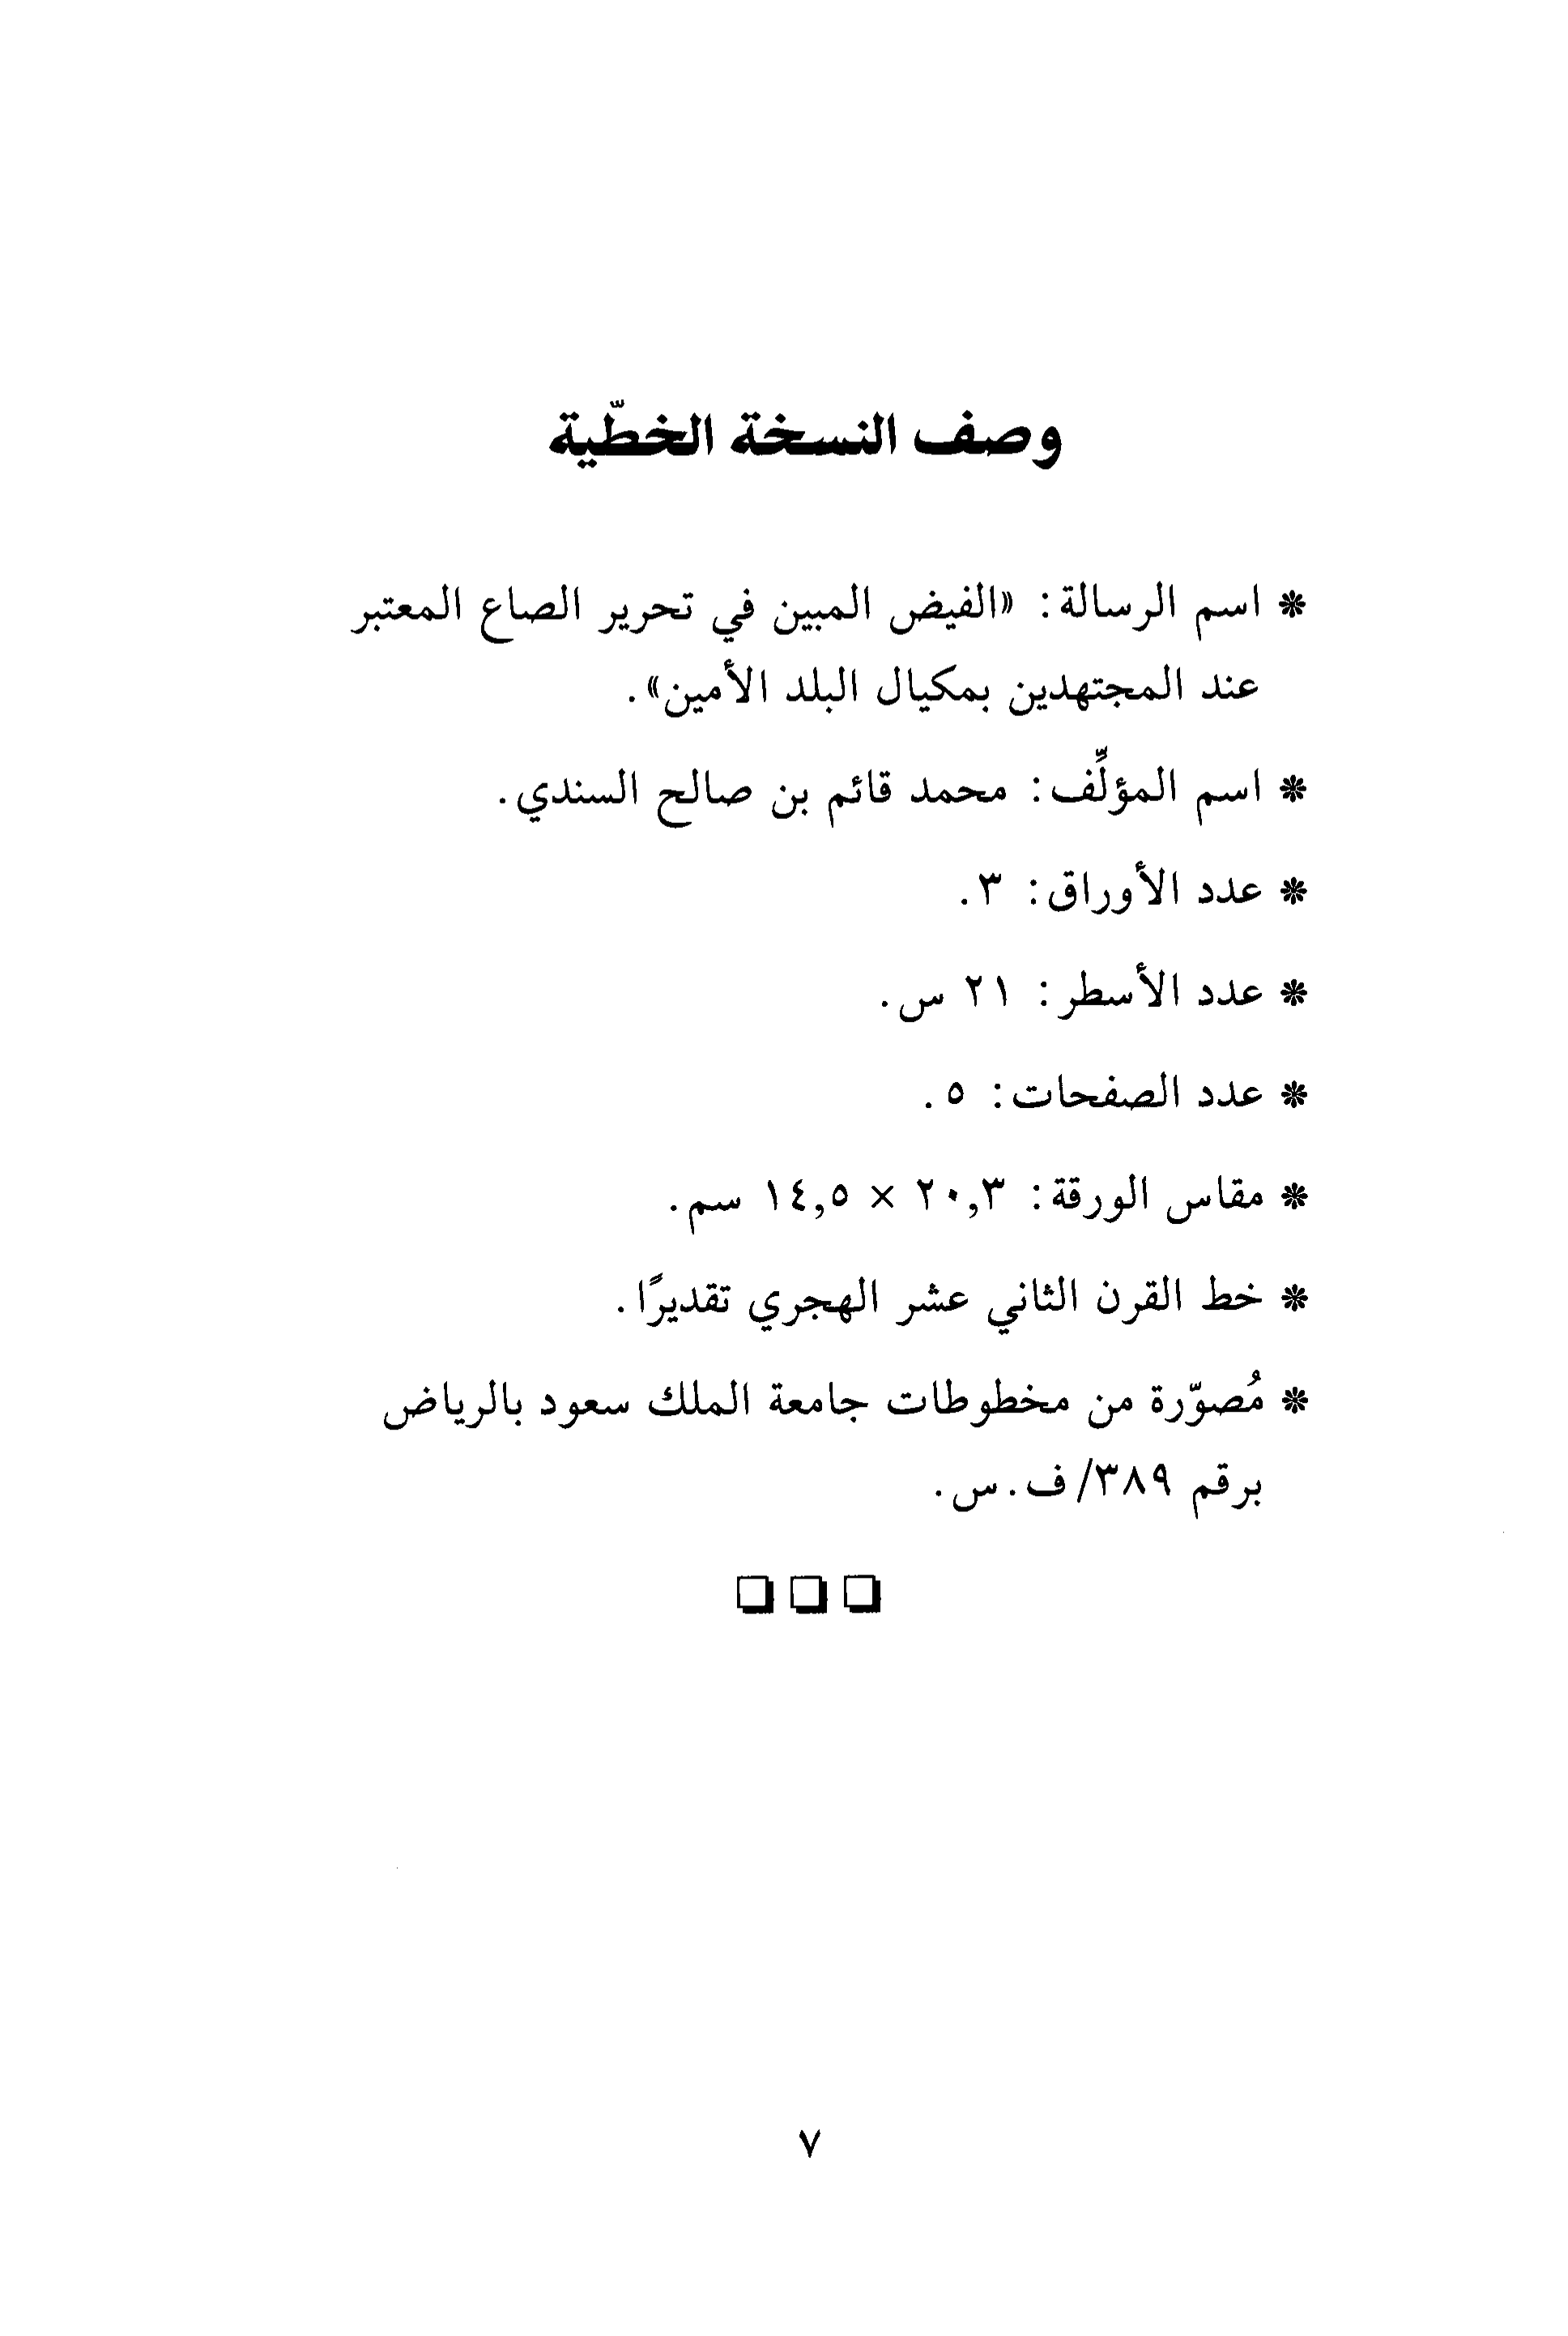 وصف النسخة الخطّية
* اسم الرسالة: «الفيض المبين في تحرير الصاع المعتبر
عند المجتهدين بمكيال البلد الأمين».
* اسم المؤلِّف: محمد قائم بن صالح السندي.
* عدد الأوراق: ٣.
* عدد الأسطر: ٢١ س.
* عدد الصفحات: ٥.
* مقاس الورقة: ٢٠,٣ × ١٤,٥ سم.
* خط القرن الثاني عشر الهجري تقديرًا.
* مُصوّرة من مخطوطات جامعة الملك سعود بالرياض
برقم ٣٨٩/ف.س.
٧